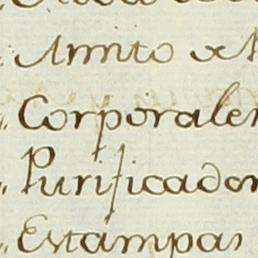 Amito de
Corporales
Purificador
Estampas